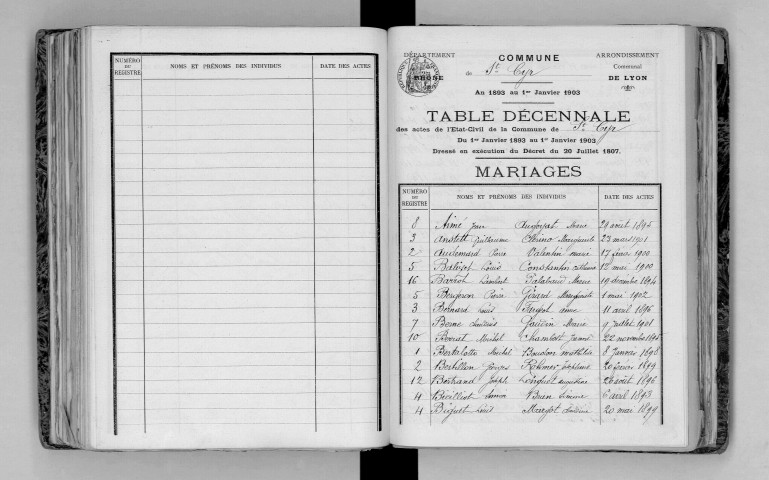 NUMÉRO DU REGISTRE NOMS ET PRÉNOMS DES INDIVIDUS DATE DES ACTES
DÉPARTEMENT COMMUNE ARRONDISSEMENT
de St Cyr Communal
RHÔNE DE LYON
An 1893 au 1er Janvier 1903
TABLE DÉCENNALE
des actes de l'Etat-Civil de la Commune de St Cyr
Du 1er Janvier 1893 au 1er Janvier 1903
Dressé en exécution du Décret du 20 Juillet 1807.
MARIAGES
NUMÉRO DU REGISTRE NOMS ET PRÉNOMS DES INDIVIDUS DATE DES ACTES
8 Aimé Jean Marie 29 août 1895
3 Anstett Guillaume Marguerite 23 mars 1901
2 Audemard Pierre Valentin Marie 17 févr 1900
5 Louis Constantin 12 mai 1900
16 Barriot Lambert Marie 19 décembre 1894
5 Bergeron Pierre Girard Marguerite 1 mai 1902
3 Bernard Louis Anne 11 avril 1896
7 Berne Gaudin Marie 9 juillet 1901
10 Michel Chambost 22 novembre 1895
1 Bertalotto Michel Boudon Mathilde 8 janvier 1898
2 Bertillon Georges 26 février 1899
12 Bertrand Joseph Longuet Augustine 26 août 1896
4 Brun 6 avril 1893
4 Biguet Louis Margot 20 mai 1899